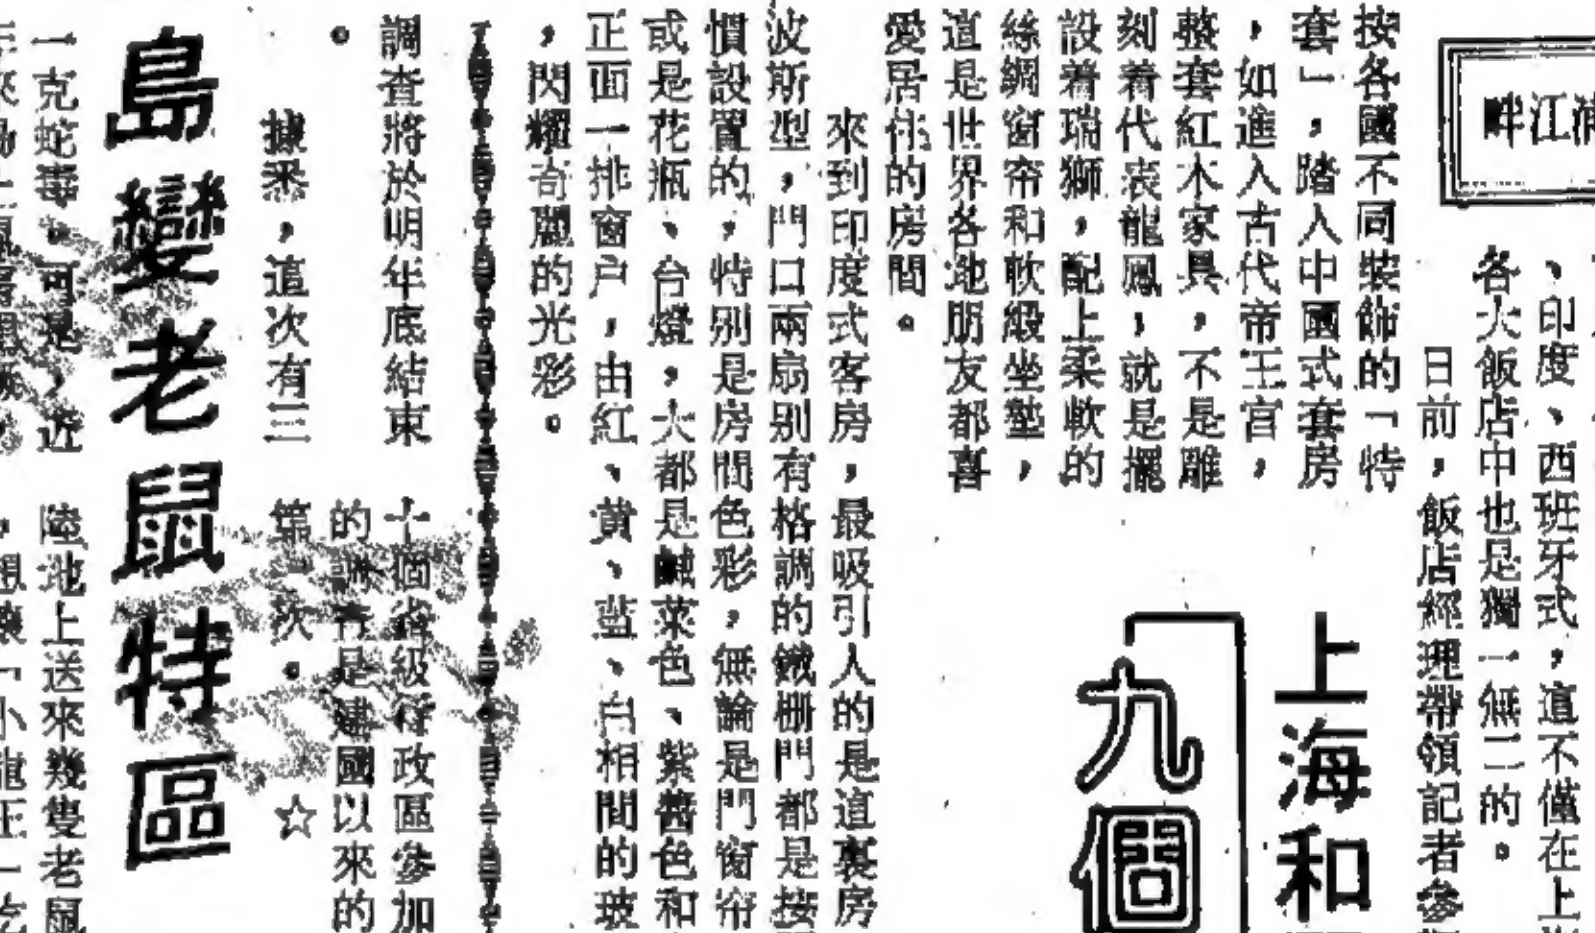 江畔
、印度、西班牙式，這不僅在上
各大飯店中也是獨一無二的。
日前，飯店經理帶領記者參
上海和
九個
按各國不同裝飾的「特
套」，踏入中國式套房
，如進入古代帝王宮，
整套紅木家具，不是雕
刻着代表龍鳳，就是擺
設着瑞獅，配上柔軟的
絲綢窗帘和軟緞坐墊，
道是世界各地朋友都喜
愛居住的房間。
來到印度式客房，最吸引人的是這裏房
波斯型，門口兩扇别有格調的鐵栅門都是按
慣設置的，特别是房間色彩，無論是門窗帘
或是花瓶、台燈，大都是鹹菜色、紫醬色和
正面一排窗户，由紅、黄、蓝、白相間的玻
，閃耀奇麗的光彩。
調查將於明年底結束
。
十個省級行政區參加
的調查是建國以來的
據悉，這次有三
第一次。☆
島變老鼠特區
一克蛇毒。可是，近
陸地上送來幾隻老鼠